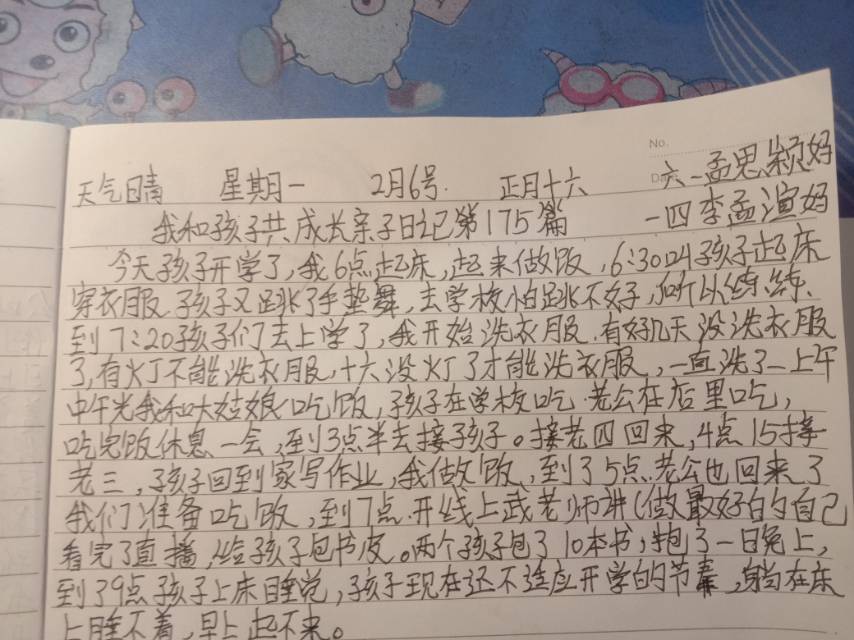 No.
天气日青 星期一 2月6号. 正月十六 六一孟思颖妈
我和孩子共成长亲子日记第175篇 一四李孟渲妈
今天孩子开学了,我6点起床,起来做饭,6:30叫孩子起床
穿衣服,孩子又跳了手垫舞,去学校怕跳不好,所以练练.
到7:20孩子们去上学了,我开始洗衣服.有好几天没洗衣服
了,有灯不能洗衣服,十六没灯了才能洗衣服,一直洗了一上午
中午光我和大姑娘吃饭,孩子在学校吃.老公在店里吃,
吃完饭休息一会,到3点半去接孩子。接老四回来,4点15接
老三,孩子回到家写作业,我做饭,到了5点老公也回来了
我们准备吃饭,到7点开线上武老师讲(做最好的自己
看完了直播,给孩子包书皮。两个孩子包了10本书,包了一日免上,
到了9点孩子上床睡觉,孩子现在还不适应开学的节奏,躺在床
上睡不着,早上起不来。